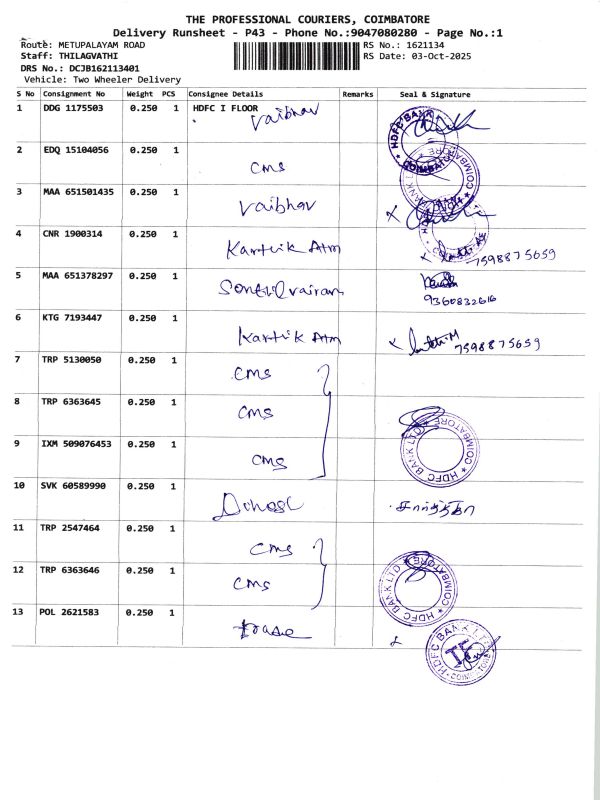 THE PROFESSIONAL COURIERS, COIMBATORE
Delivery Runsheet - P43 - Phone No.:9047080280 - Page No.:1
Route: METUPALAYAM ROAD RS No.: 1621134
Staff: THILAGVATHI RS Date: 03-Oct-2025
DRS No.: DCJB162113401
Vehicle: Two Wheeler Delivery
S No Consignment No Weight PCS Consignee Details Remarks Seal & Signature
1 DDG 1175503 0.250 1 HDFC I FLOOR
Vaibhav
HDFC BANK COIMBATORE
2 EDQ 15104056 0.250 1 CMS
3 MAA 651501435 0.250 1 Vaibhav
4 CNR 1900314 0.250 1 Karthik Atm 7598875659
5 MAA 651378297 0.250 1
9360832616
6 KTG 7193447 0.250 1 Kartik Atm 7598875659
7 TRP 5130050 0.250 1 CMS
8 TRP 6363645 0.250 1 CMS
HDFC BANK LTD COIMBATORE
9 IXM 509076453 0.250 1 CMS
10 SVK 60589990 0.250 1
11 TRP 2547464 0.250 1 CMS
12 TRP 6363646 0.250 1 CMS
HDFC BANK LTD COIMBATORE
13 POL 2621583 0.250 1
HDFC BANK LTD COIMBATORE